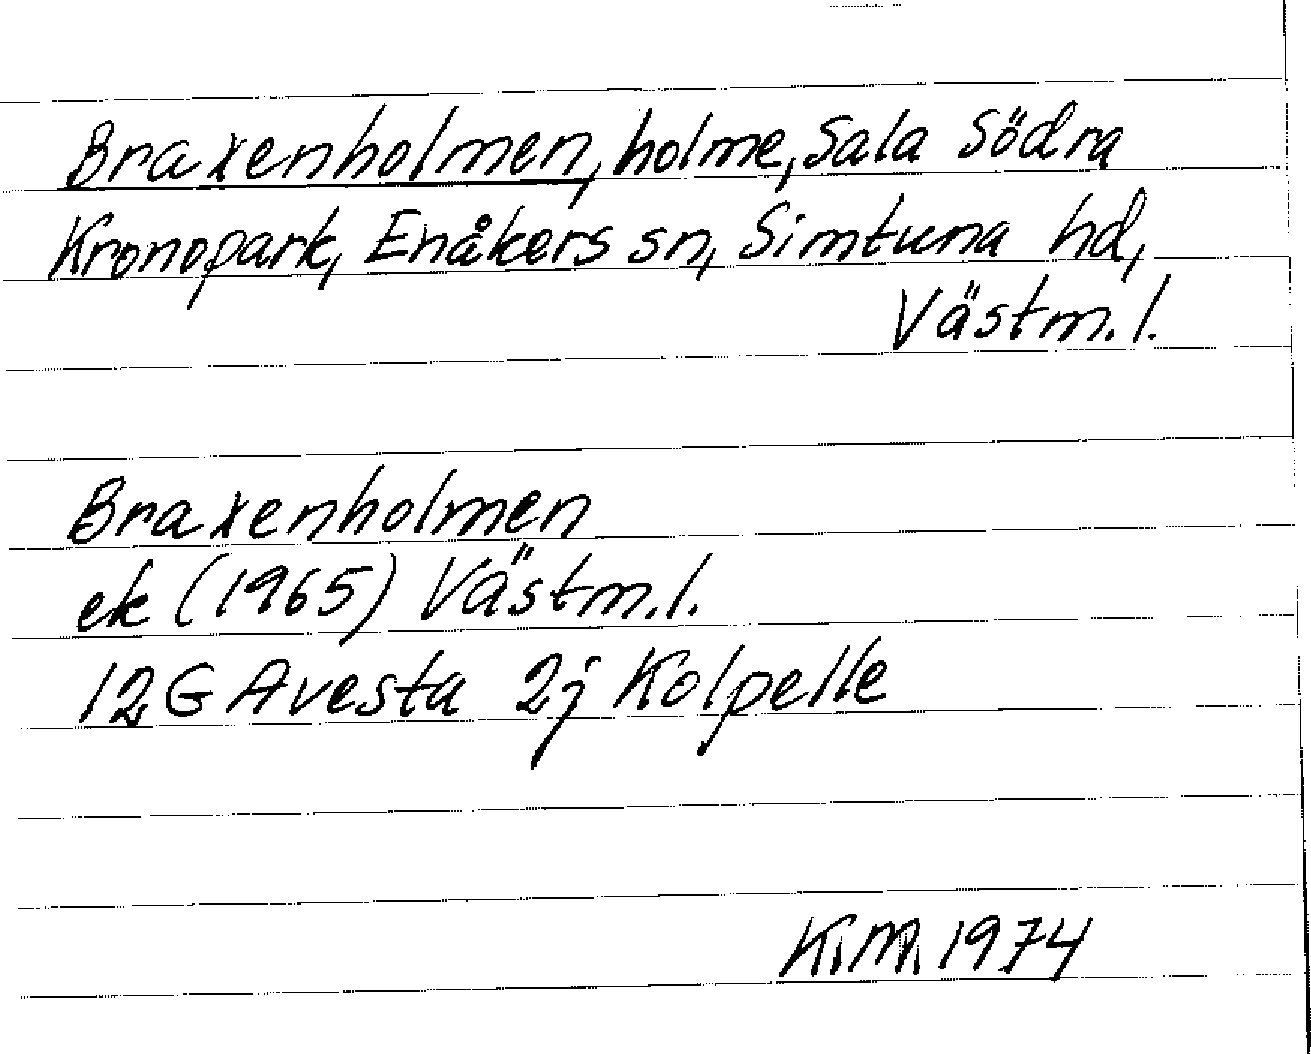 Braxenholmen, holme, Sala Södra
Kronopark, Enåkers sn, Simtuna hd,
Västm. l.
Braxenholmen
ek (1965) Västm. l.
12 G Avesta 2j Kolpelle
K.M. 1974